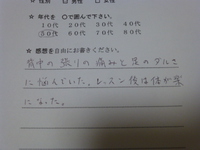 ☆ 性別 □ 男性 □ 女性
☆ 年代を ○で囲んで下さい。
10代 20代 30代 40代
50代 60代 70代 80代
☆ 感想を自由にお書きください。
背中の張りの痛みと足のダルさ
に悩んでいた。レッスン後は体が楽
になった。